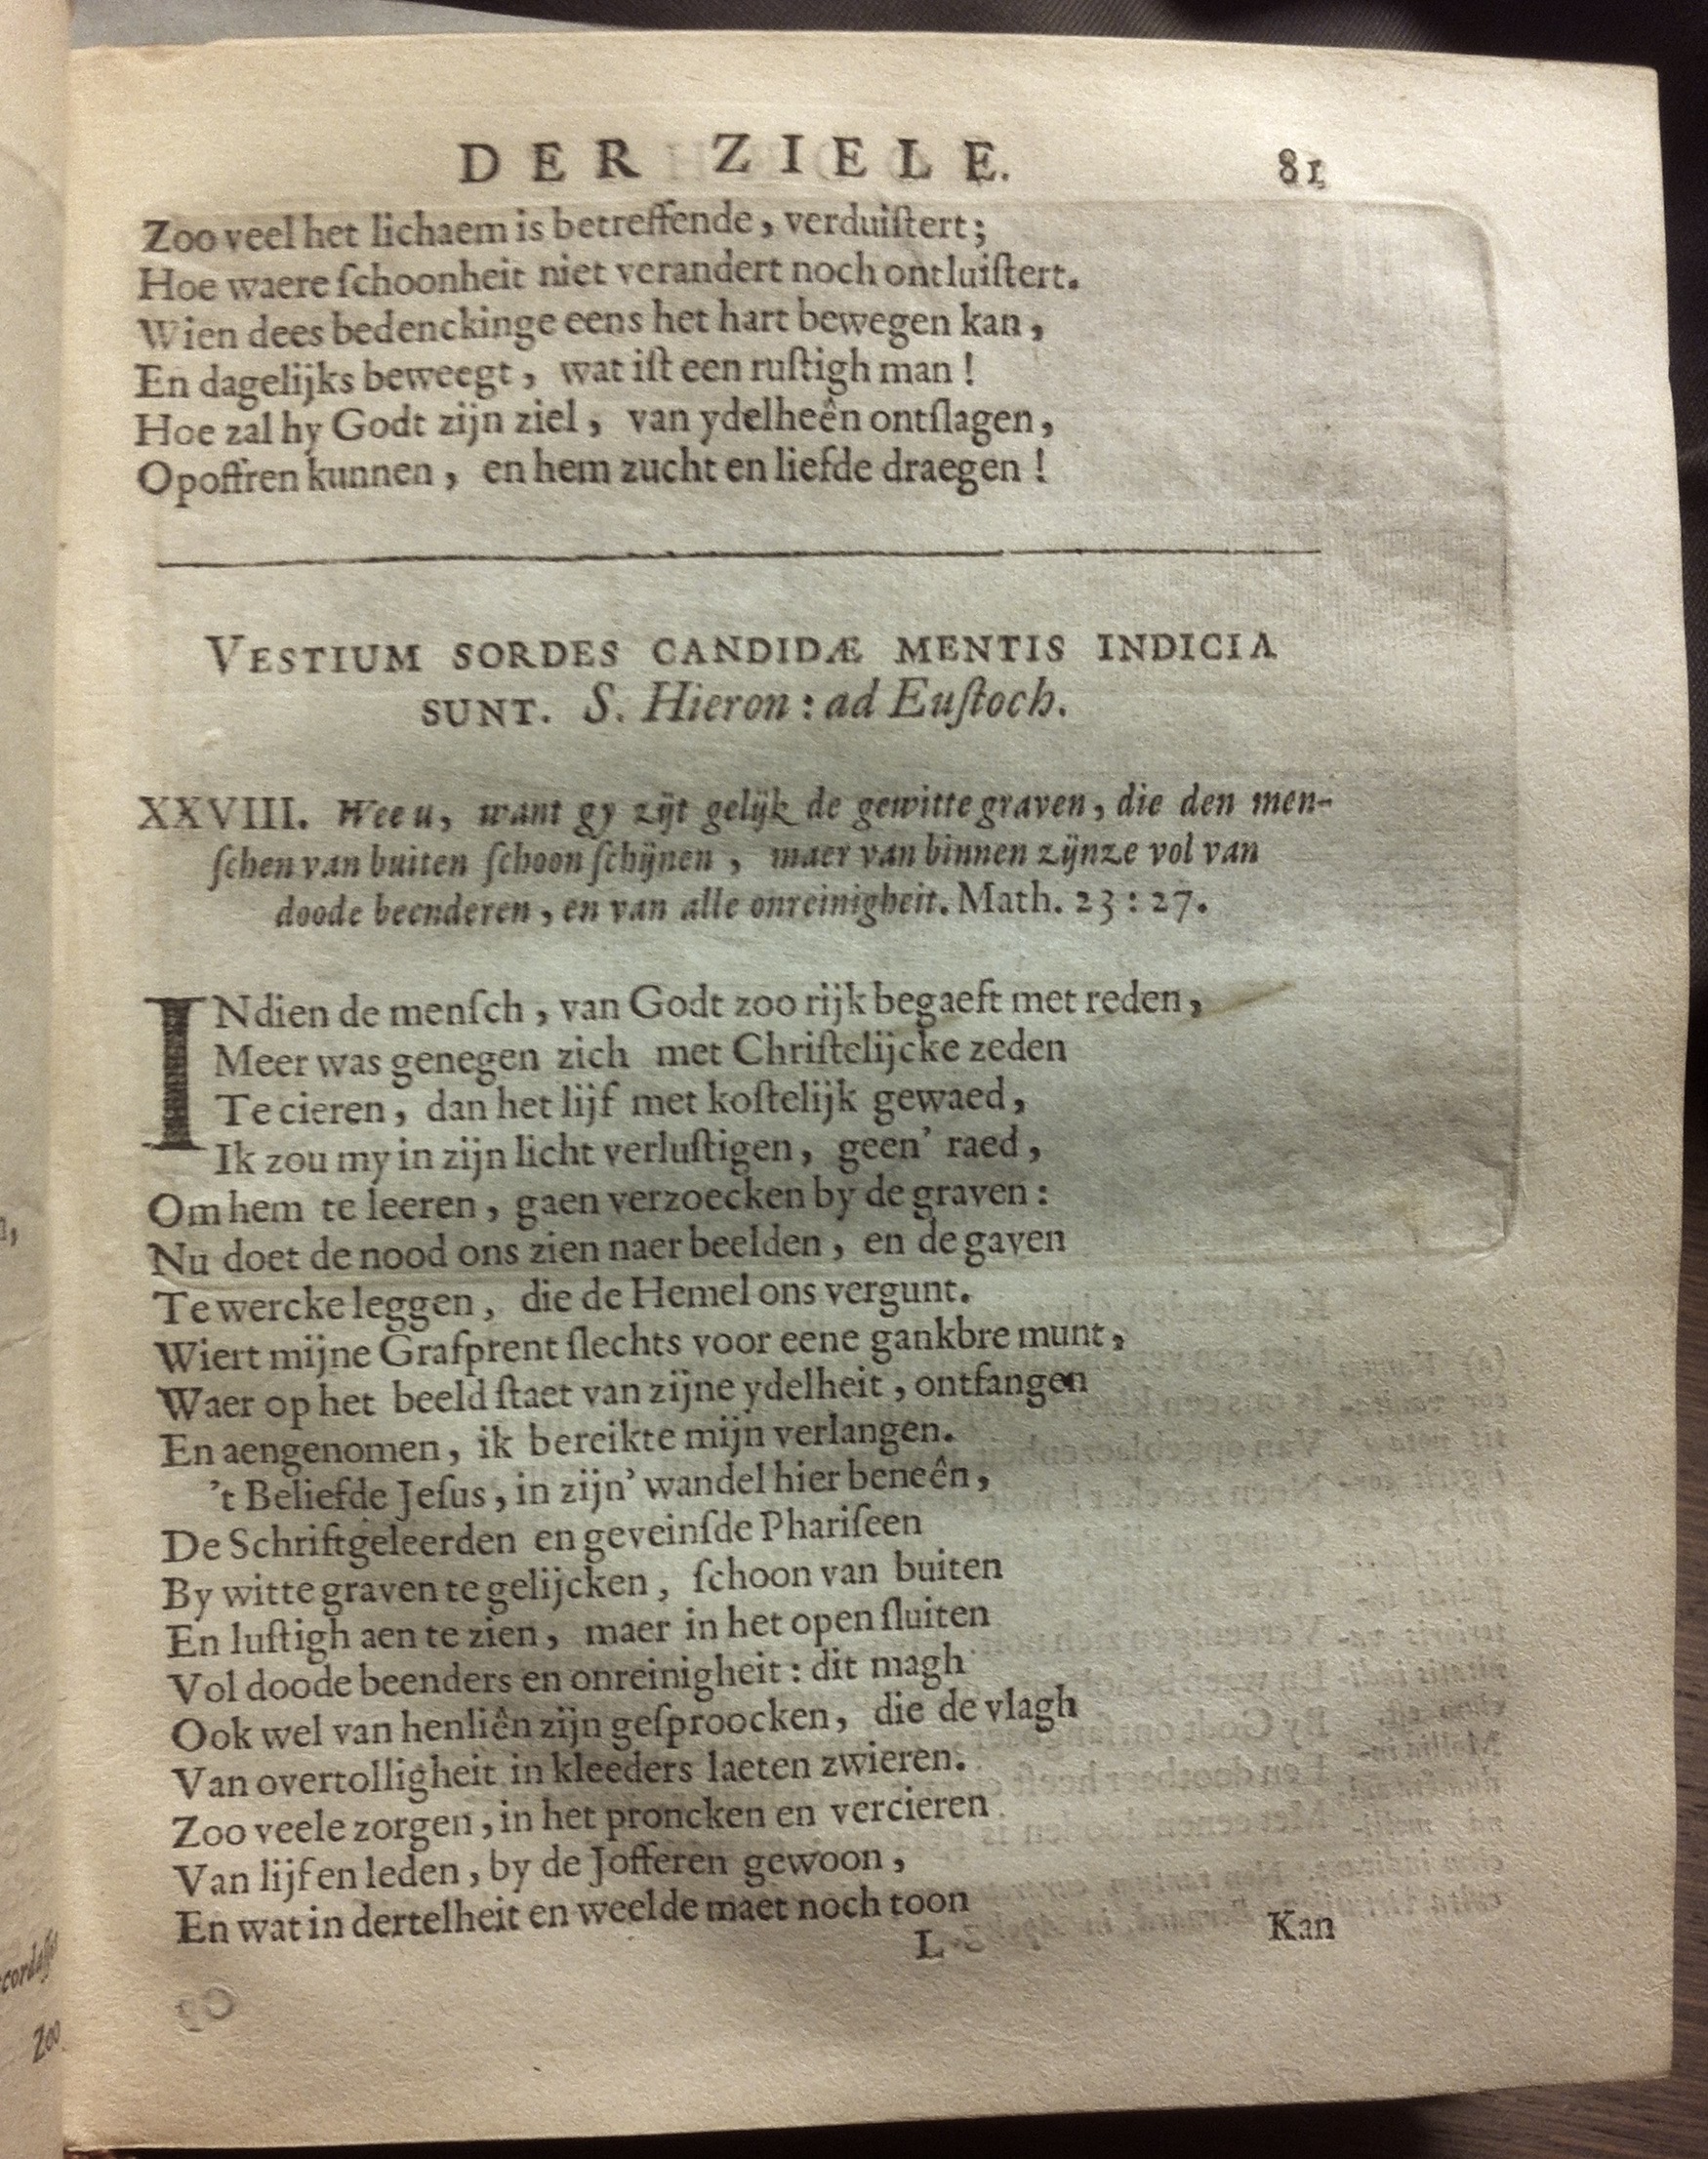 DER ZIELE. 81
Zoo veel het lichaem is betreffende, verduiſtert;
Hoe waere ſchoonheit niet verandert noch ontluiſtert.
Wien dees bedenckinge eens het hart bewegen kan,
En dagelijks beweegt, wat iſt een ruſtigh man!
Hoe zal hy Godt zijn ziel, van ydelheên ontſlagen,
Opoffren kunnen, en hem zucht en liefde draegen!
VESTIUM SORDES CANDIDÆ MENTIS INDICIA
SUNT. S. Hieron: ad Euſtoch.
XXVIII. Wee u, want gy zijt gelijk de gewitte graven, die den men-
ſchen van buiten ſchoon ſchijnen, maer van binnen zijnze vol van
doode beenderen, en van alle onreinigheit. Math. 23: 27.
INdien de menſch, van Godt zoo rijk begaeft met reden,
Meer was genegen zich met Chriſtelijcke zeden
Te cieren, dan het lijf met koſtelijk gewaed,
Ik zou my in zijn licht verluſtigen, geen' raed,
Om hem te leeren, gaen verzoecken by de graven:
Nu doet de nood ons zien naer beelden, en de gaven
Te wercke leggen, die de Hemel ons vergunt.
Wiert mijne Grafprent ſlechts voor eene gankbre munt,
Waer op het beeld ſtaet van zijne ydelheit, ontfangen
En aengenomen, ik bereikte mijn verlangen.
't Beliefde Jeſus, in zijn' wandel hier beneên,
De Schriftgeleerden en geveinſde Phariſeen
By witte graven te gelijcken, ſchoon van buiten
En luſtigh aen te zien, maer in het open ſluiten
Vol doode beenders en onreinigheit: dit magh
Ook wel van henliên zijn geſproocken, die de vlagh
Van overtolligheit in kleeders laeten zwieren.
Zoo veele zorgen, in het proncken en vercieren
Van lijf en leden, by de Jofferen gewoon,
En wat in dertelheit en weelde maet noch toon
L Kan
Zoo